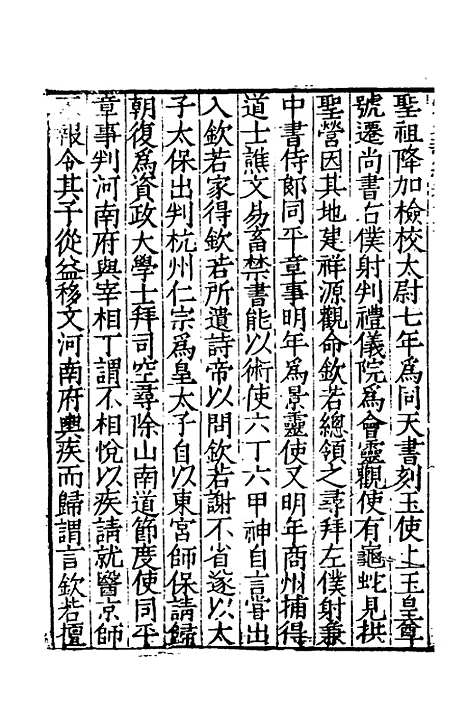 聖祖降加檢校太尉七年爲同天書刻玉使上玉皇尊
號遷尚書右僕射判禮儀院爲會靈觀使有龜蛇見拱
聖營因其地建祥源觀命欽若總領之尋拜左僕射兼
中書侍郎同平章事明年爲景靈使又明年商州捕得
道士譙文易畜禁書能以術使六丁六甲神自言嘗出
入欽若家得欽若所遺詩帝以問欽若謝不省遂以太
子太保出判杭州仁宗爲皇太子自以東宮師保請歸
朝復爲資政大學士拜司空尋除山南道節度使同平
章事判河南府與宰相丁謂不相悅以疾請就醫京師
報令其子從益移文河南府輿疾而歸謂言欽若擅